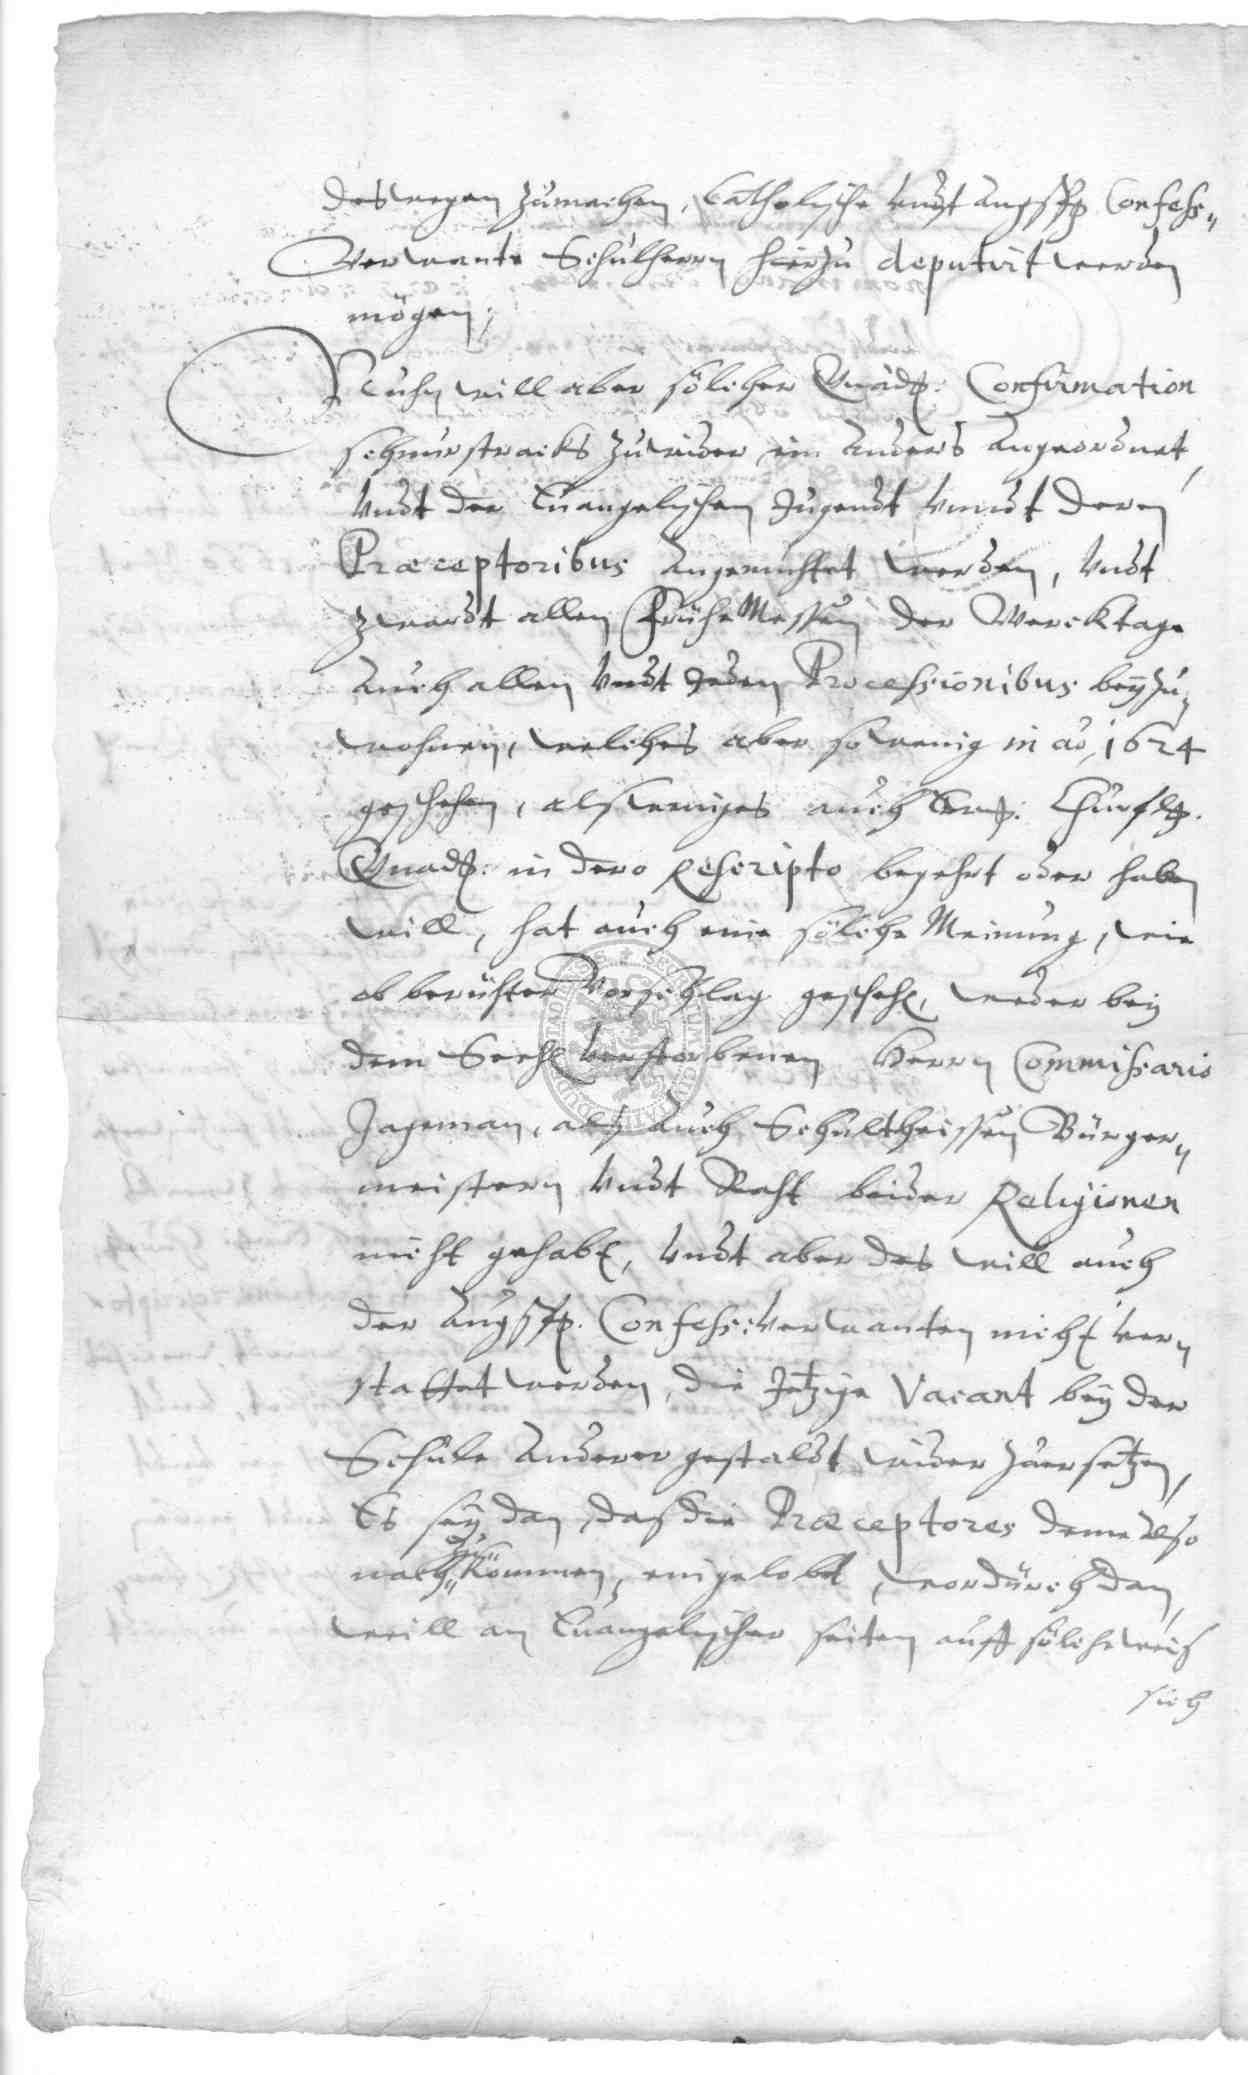 deswegen zumachen, Catholische vndt Augspp. Confess„
Verwante Schulherrn hierzu deputirt werden
mögen,
Nuhn will aber solcher Gnäd. Confirmation
schnurstracks zuwider ein anders angeordnet,
vndt der Euangelischen Jugendt vnndt deren
Præceptoribus angemuhtet werden, vndt
zwardt allen Frühe Messen der Wercktage
auch allen vndt Jeden Processionibus beÿzu„
wohnen, welches aber so wenig in ao, 1624
geschehen, als weniges auch Churfl.
Gnad. in dero Rescripto begehrt oder haben
will, hat auch eine solche Meinung, wie
ob berührter Vorschlag gescheh, weder beÿ
dem Seel verstorbenen Herrn Commissario
Jageman, alß auch Schultheissen Bürger„
meistern vndt Raht beider Religionen
nicht gehabt, vndt aber des will auch
der Augspp. Confess: Verwanten nicht ver„
stattet werden, die Jetzige Vacant beÿ der
Schule anderer gestaldt wider zuersetzen,
Es seÿ dan, daß die Præceptores deme also
nach„zu„kommen, eingelobt, wordurch dan,
weill an Euangelischer seiten auff solche weiß
sich